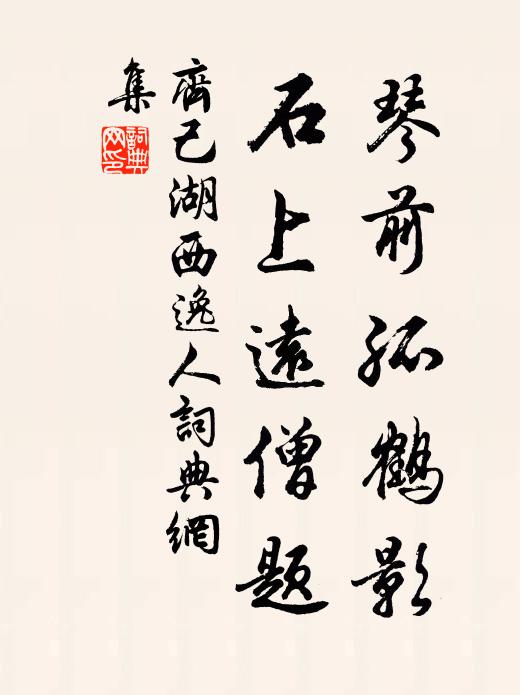 琴前孤鶴影
石上遠僧題
齊己湖西逸人詞典網
集
詞典網印